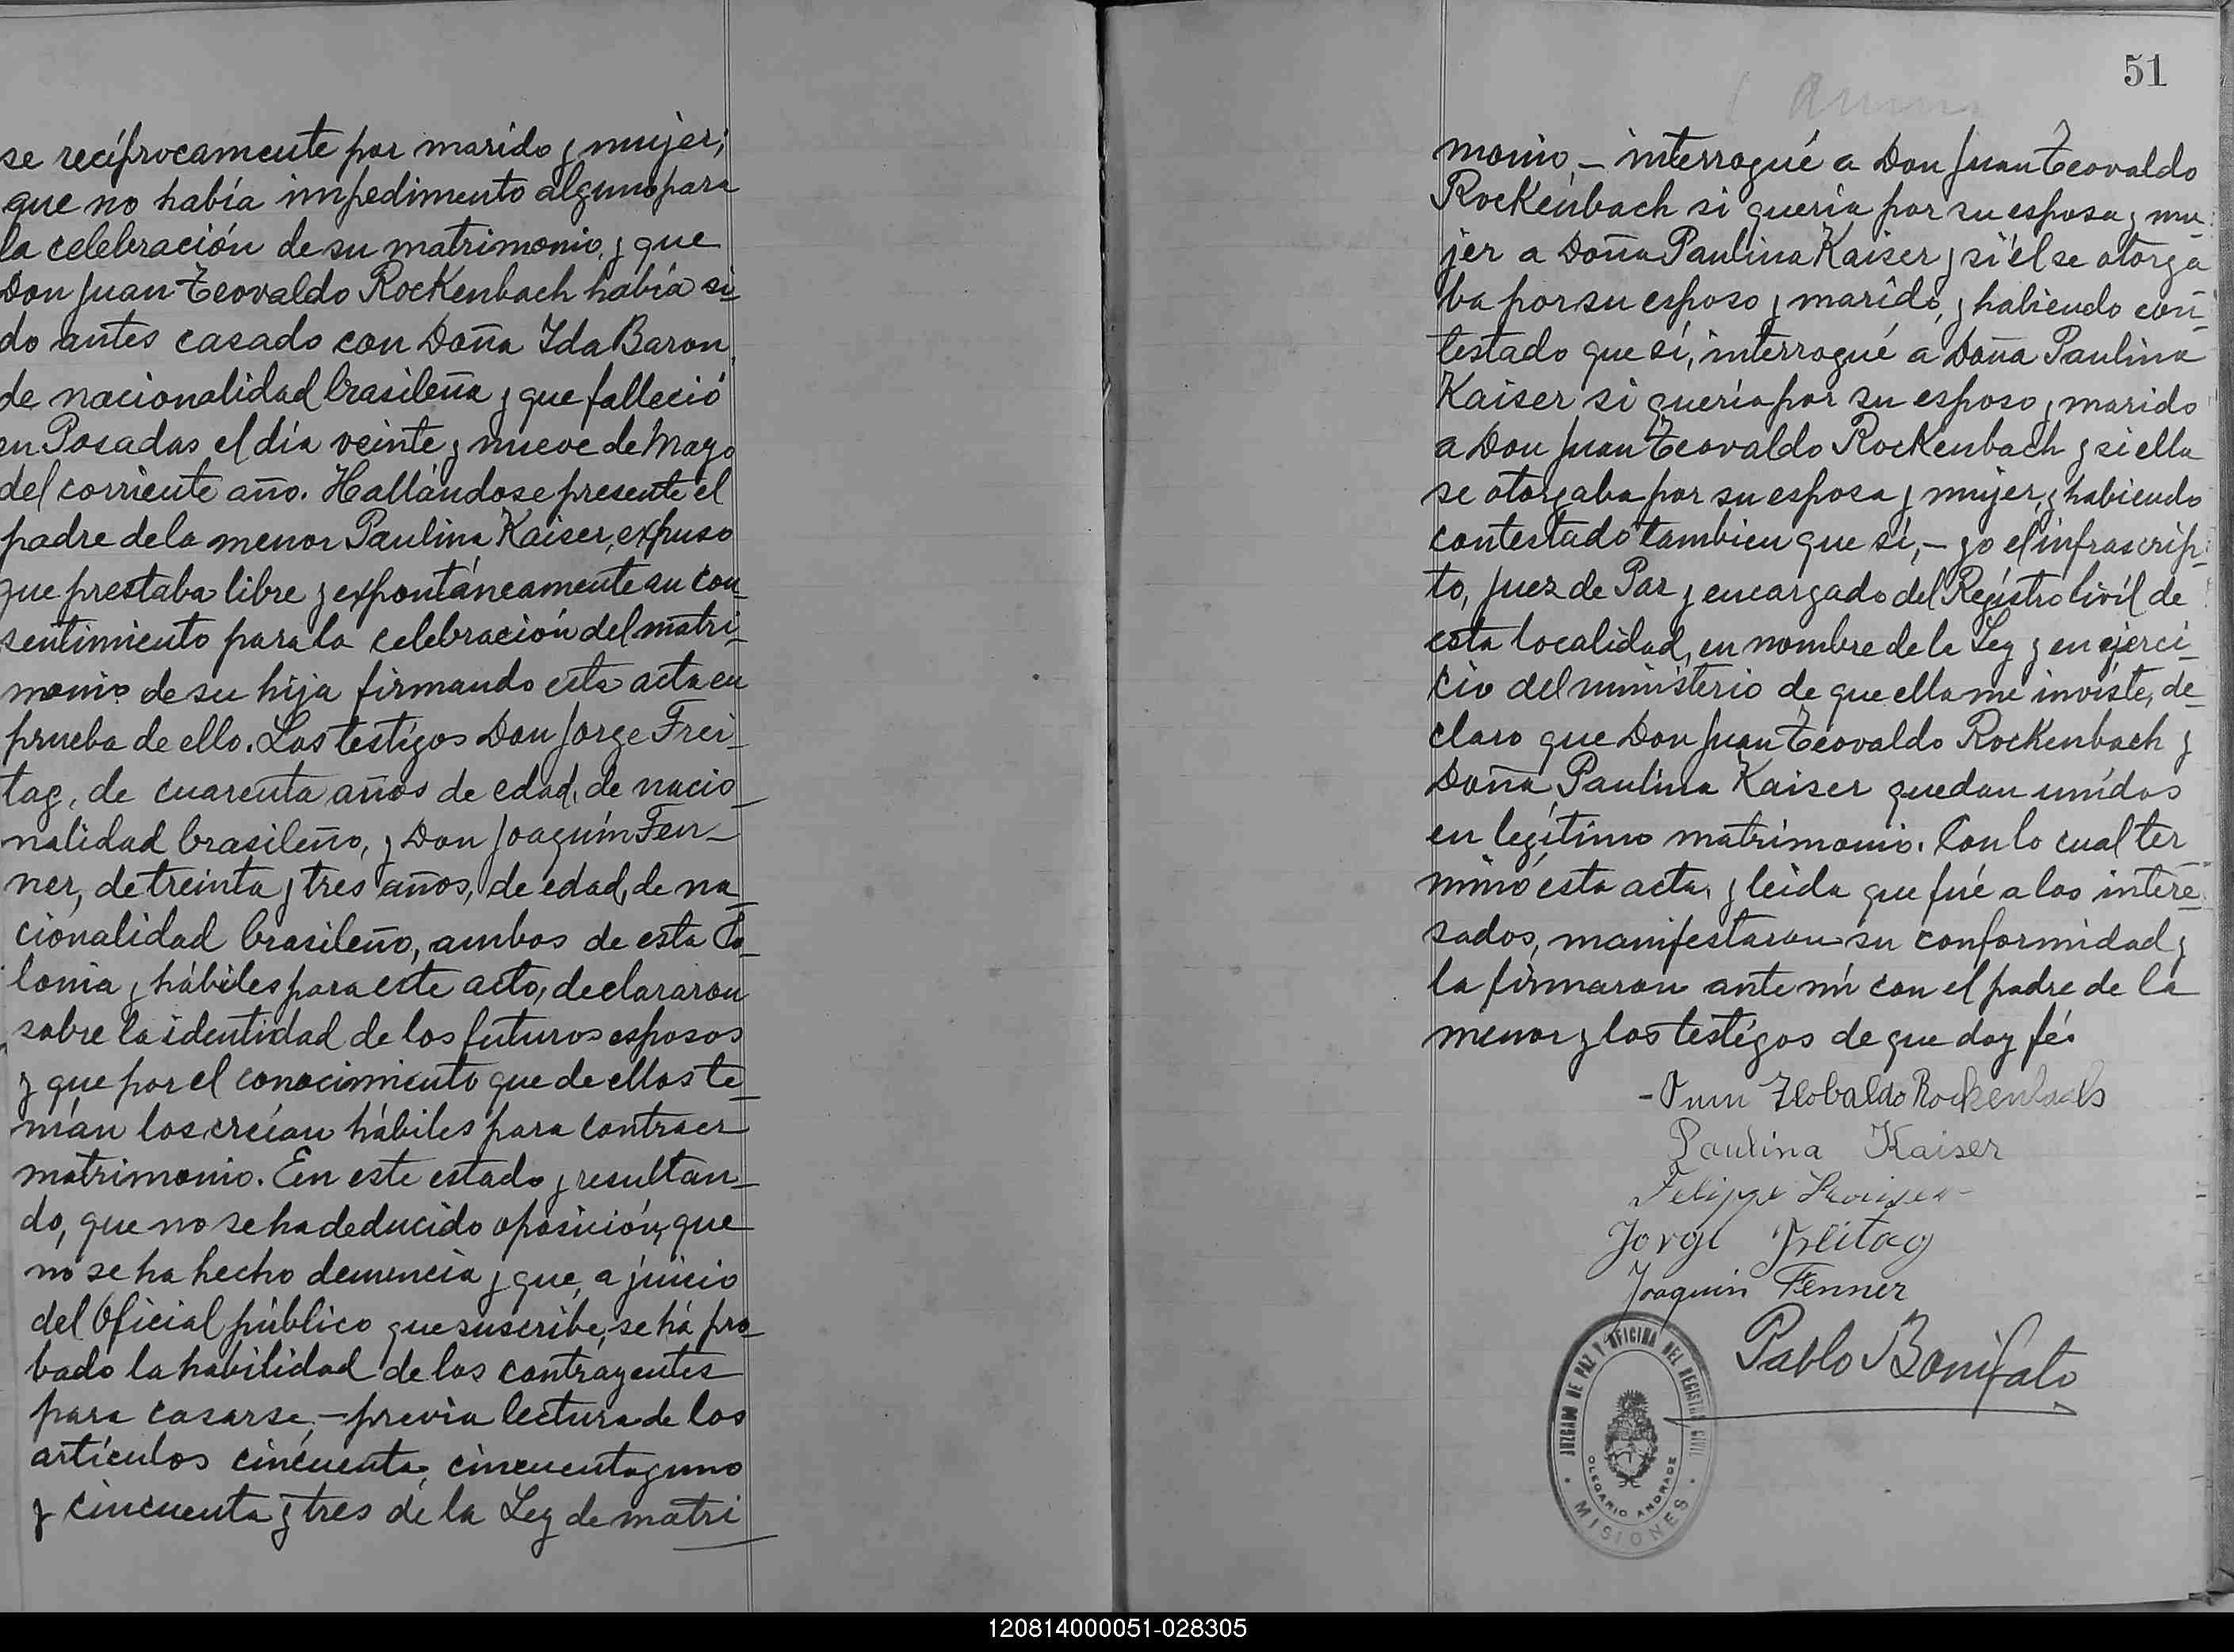 se recíprocamente por marido y mujer;
que no había impedimento alguno para
la celebración de su matrimonio, y que
Don Juan Teovaldo Rockenbach había si-
do antes casado con Doña Ida Baron,
de nacionalidad brasileña y que falleció
en Posadas el día veinte y nueve de Mayo
del corriente año. Hallándose presente el
padre de la menor Paulina Kaiser, expuso
que prestaba libre y expontáneamente su con-
sentimiento para la celebración del matri-
monio de su hija firmando esta acta en
prueba de ello. Los testigos Don Jorge Frei-
tag, de cuarenta años de edad, de nacio-
nalidad brasileño, y Don Joaquín Fen-
ner, de treinta y tres años, de edad, de na-
cionalidad brasileño, ambos de esta Co-
lonia y hábiles para este acto, declararon
sobre la identidad de los futuros esposos
y que por el conocimiento que de ellos te-
nían los creían hábiles para contraer
matrimonio. En este estado y resultan-
do, que no se ha deducido oposición, que
no se ha hecho denuncia y que, a juicio
del Oficial público que suscribe, se há pro-
bado la habilidad de los contrayentes
para casarse,- previa lectura de los
artículos cincuenta, cincuenta y uno
y cincuenta y tres de la Ley de matri-
51
monio,- interrogué a Don Juan Teovaldo
Rockenbach si quería por su esposa y mu-
jer a Doña Paulina Kaiser y si él se otorga
ba por su esposo y marido, y habiendo con-
testado que sí, interrogué a Doña Paulina
Kaiser si quería por su esposo y marido
a Don Juan Teovaldo Rockenbach y si ella
se otorgaba por su esposa y mujer, y habiendo
contestado tambien que sí,- yo el infrascrip-
to, Juez de Paz y encargado del Registro Civíl de
esta localidad, en nombre de la Ley y en ejerci-
cio del ministerio de que ella me inviste, de-
claro que Don Juan Teovaldo Rockenbach y
Doña Paulina Kaiser quedan unidos
en legítimo matrimonio. Con lo cual ter
minó esta acta, y leida que fué a los intere-
sados, manifestaron su conformidad y
la firmaron ante mí con el padre de la
menor y los testigos de que doy fé.
Teobaldo Rockenbach
Paulina Kaiser
Felippe
Jorge Freitag
Joaquin Fenner
Pablo Bonifato
JUZGADO DE PAZ Y OFICINA DEL REGISTRO CIVIL
OLEGARIO ANDRADE
MISIONES
120814000051-028305